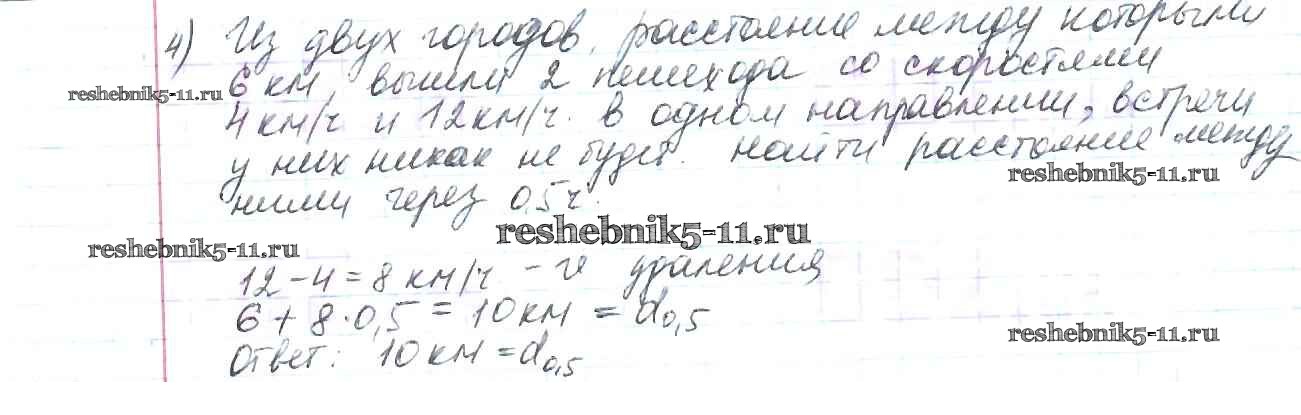 4) Из двух городов, расстояние между которыми
6 км, вышли 2 пешехода со скоростями
reshebnik5-11.ru
4 км/ч и 12 км/ч. в одном направлении, встречи
у них никак не будет. Найти расстояние между
reshebnik5-11.ru
ними через 0,5 ч.
reshebnik5-11.ru
reshebnik5-11.ru
12 - 4 = 8 км/ч - v удаления
6 + 8 · 0,5 = 10 км = d0,5
reshebnik5-11.ru
Ответ: 10 км = d0,5